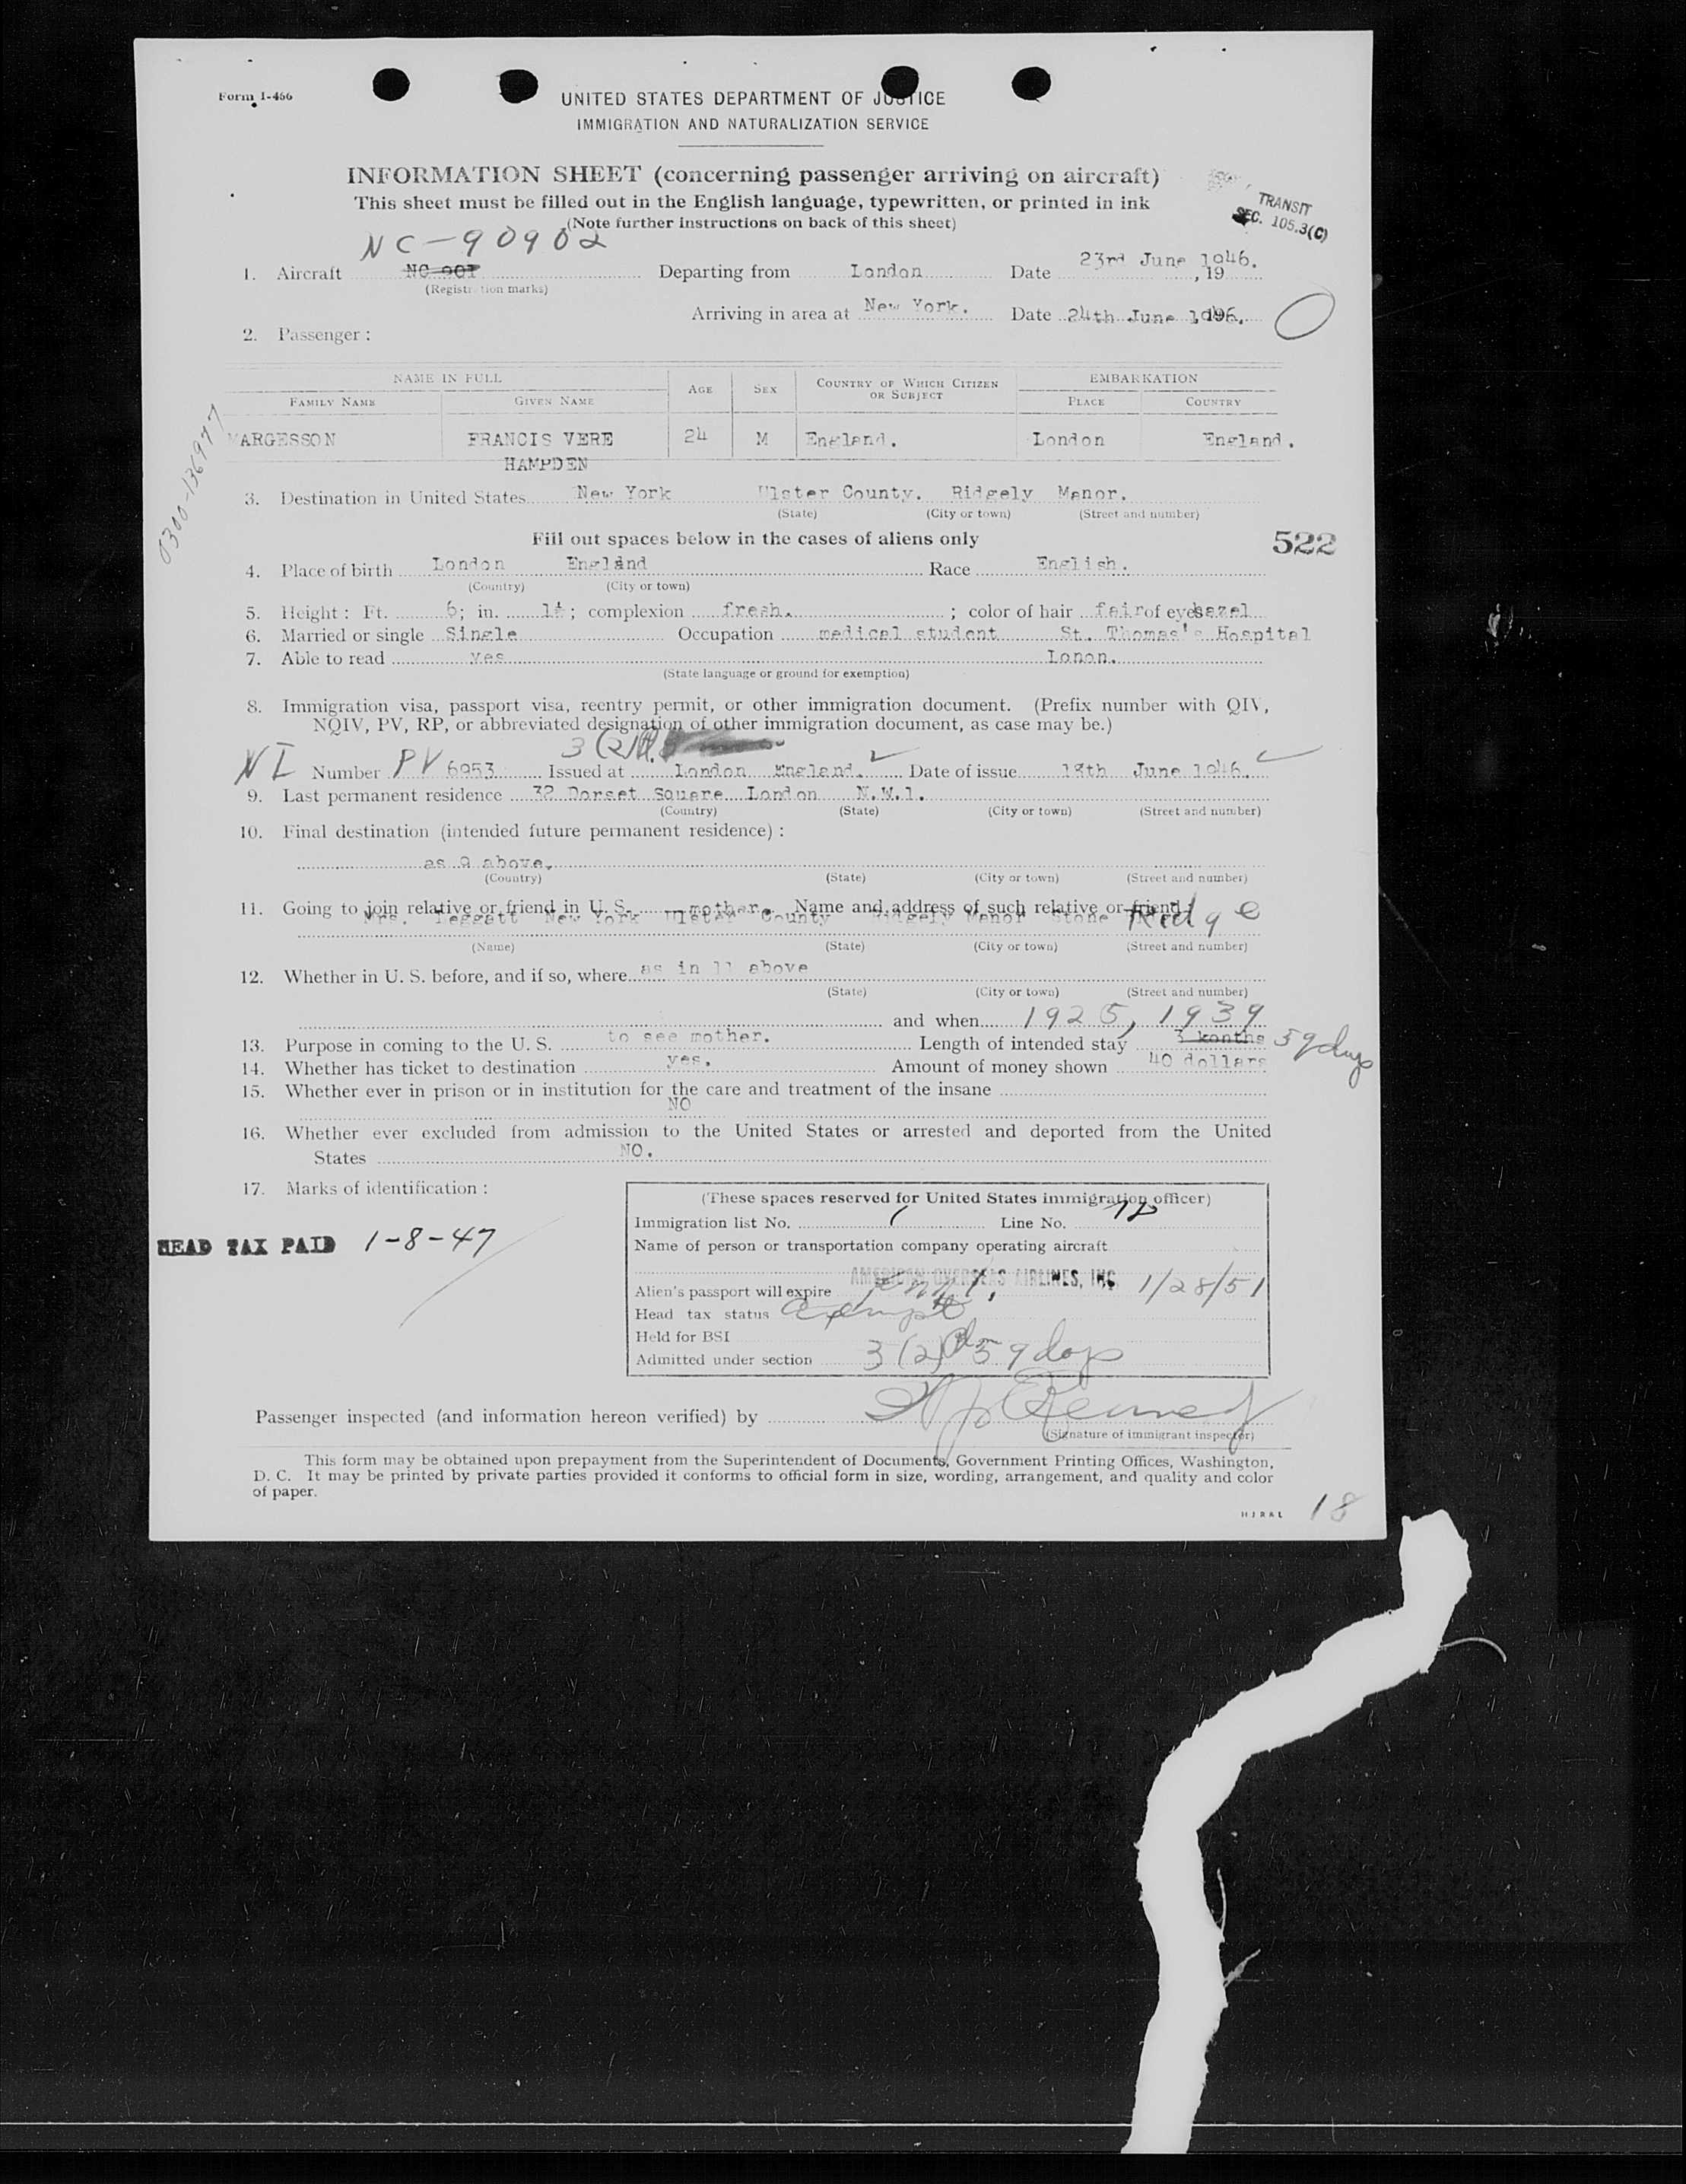 Form I-466
UNITED STATES DEPARTMENT OF JUSTICE
IMMIGRATION AND NATURALIZATION SERVICE
INFORMATION SHEET (concerning passenger arriving on aircraft)
This sheet must be filled out in the English language, typewritten, or printed in ink
(Note further instructions on back of this sheet)
TRANSIT
SEC. 105.3(C)
NC-90902
1. Aircraft NC 901 Departing from London Date 23rd June 1946. , 19
(Registration marks)
Arriving in area at New York. Date 24th June 1946.
2. Passenger :
NAME IN FULL AGE SEX COUNTRY OF WHICH CITIZEN OR SUBJECT EMBARKATION
FAMILY NAME GIVEN NAME PLACE COUNTRY
MARGESSON FRANCIS VERE 24 M England. London England.
HAMPDEN
0300-136977
3. Destination in United States New York Ulster County. Ridgely Manor.
(State) (City or town) (Street and number)
Fill out spaces below in the cases of aliens only
522
4. Place of birth London England Race English.
(Country) (City or town)
5. Height : Ft. 6; in. 1½; complexion fresh. ; color of hair fair of eyes hazel
6. Married or single Single Occupation medical student St. Thomas's Hospital
7. Able to read yes Lonon.
(State language or ground for exemption)
8. Immigration visa, passport visa, reentry permit, or other immigration document. (Prefix number with QIV,
NQIV, PV, RP, or abbreviated designation of other immigration document, as case may be.)
3(2)
NI Number PV 6953 Issued at London England. Date of issue 18th June 1946.
9. Last permanent residence 32 Dorset Square London N.W.1.
(Country) (State) (City or town) (Street and number)
10. Final destination (intended future permanent residence) :
as 9 above.
(Country) (State) (City or town) (Street and number)
11. Going to join relative or friend in U. S. mother. Name and address of such relative or friend:
Mrs. Leggatt New York Ulster County Ridgely Manor Stone Ridge
(Name) (State) (City or town) (Street and number)
12. Whether in U. S. before, and if so, where as in 11 above
(State) (City or town) (Street and number)
and when 1925, 1939
13. Purpose in coming to the U. S. to see mother. Length of intended stay 3 konths 59 days
14. Whether has ticket to destination yes. Amount of money shown 40 dollars
15. Whether ever in prison or in institution for the care and treatment of the insane
NO
16. Whether ever excluded from admission to the United States or arrested and deported from the United
States NO.
17. Marks of identification :
HEAD TAX PAID 1-8-47
(These spaces reserved for United States immigration officer)
Immigration list No. 1 Line No.
Name of person or transportation company operating aircraft
AMERICAN OVERSEAS AIRLINES, INC.
Alien's passport will expire 1/28/51
Head tax status exempt
Held for BSI
Admitted under section 3(2) 59 days
Passenger inspected (and information hereon verified) by
(Signature of immigrant inspector)
This form may be obtained upon prepayment from the Superintendent of Documents, Government Printing Offices, Washington,
D. C. It may be printed by private parties provided it conforms to official form in size, wording, arrangement, and quality and color
of paper.
18